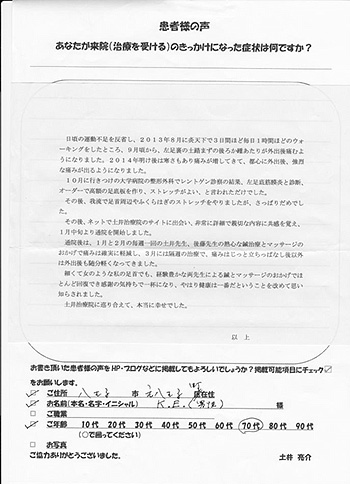 患者様の声
あなたが来院(治療を受ける)のきっかけになった症状は何ですか?
日頃の運動不足を反省し、2013年8月に炎天下で3日間ほど毎日1時間ほどのウォ
ーキングをしたところ、9月頃から、左足裏の土踏まずの後ろか踵あたりが外出後痛むよ
うになりました。2014年明け後は寒さもあり痛みが増してきて、都心に外出後、強烈
な痛みが出るようになりました。
10月に行きつけの大学病院の整形外科でレントゲン診察の結果、左足底筋膜炎と診断、
オーダーで高額の足底板を作り、ストレッチがよい、と言われただけでした。
その後、我流で足首周辺やふくらはぎのストレッチをやりましたが、さっぱりだめでし
た。
その後、ネットで土井治療院のサイトに出会い、非常に詳細で親切な内容に共感を覚え、
1月中旬より通院を開始しました。
通院後は、1月と2月の毎週一回の土井先生、後藤先生の熱心な鍼治療とマッサージの
おかげで痛みは確実に軽減し、3月には隔週の治療で、痛みはじっと立ちっぱなし後以
外は外出後も随分軽くなってきました。
細くて女のような私の足首でも、経験豊かな両先生による鍼とマッサージのおかげでほ
とんど回復でき感謝の気持ちで一杯になり、やはり健康は一番だということを改めて思い
知らされました。
土井治療院に巡り合えて、本当に幸せでした。
以上
お書き頂いた患者様の声をHP・ブログなどに掲載してもよろしいでしょうか?掲載可能項目にチェック☑
をお願いします。
☑ ご住所 八王子 市 元八王子 町 在住
☑ お名前(本名・名字・イニシャル) K.E.(男性) 様
□ ご職業
☑ ご年齢 10代 20代 30代 40代 50代 60代 70代 80代 90代
(○で囲ってください)
□ お写真
ご協力ありがとうございました。 土井 亮介